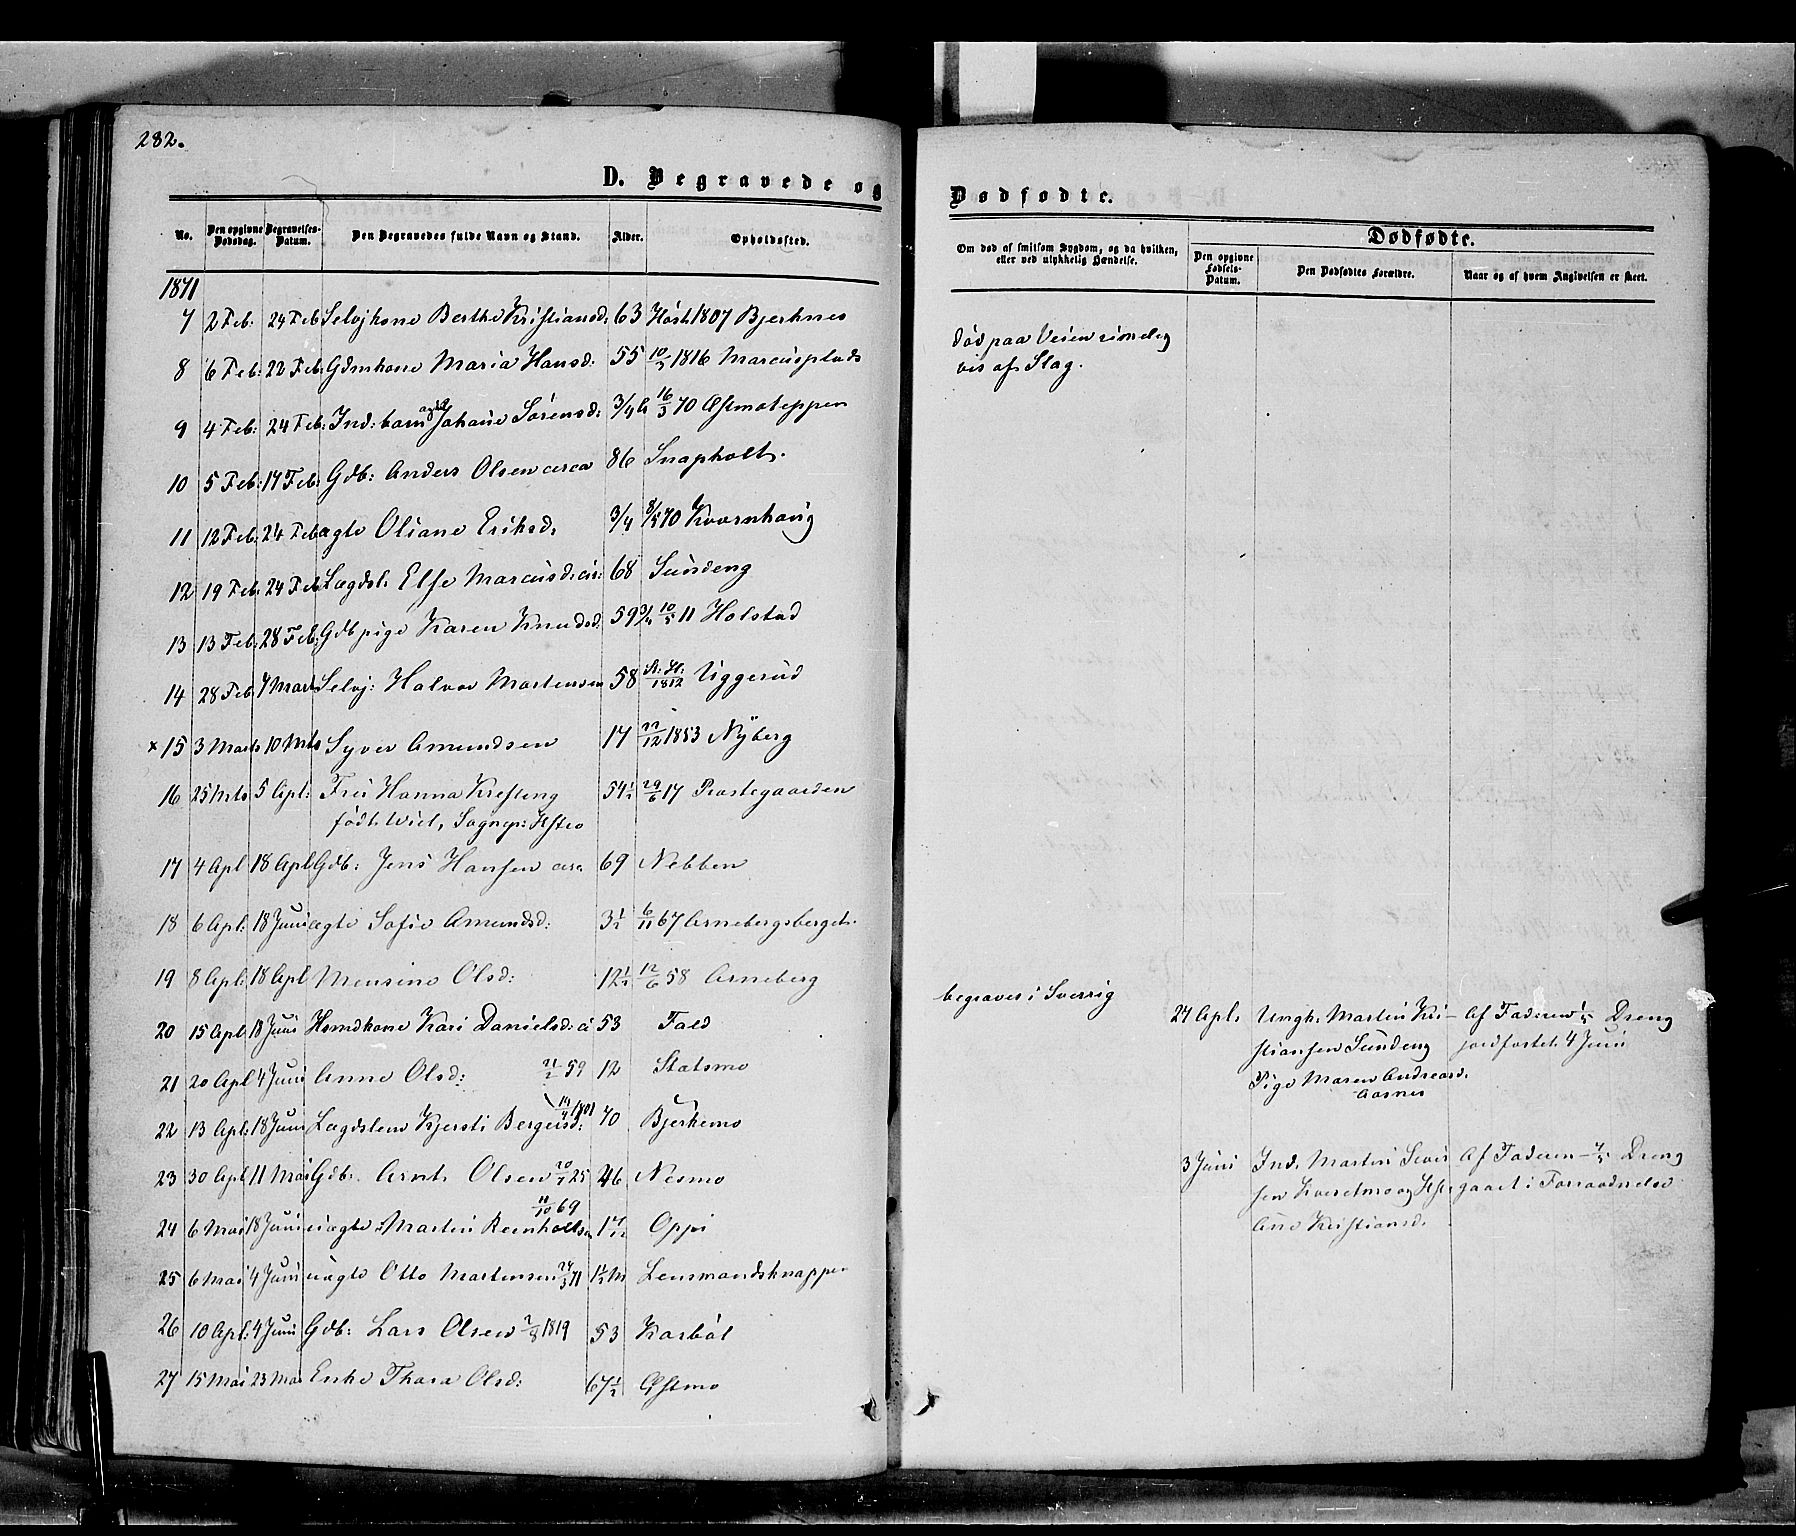 282.
D. Begravede og
No. Den opgivne Dødsdag. Begravelses-Datum. Den Begravedes fulde Navn og Stand. Alder. Opholdssted.
1871
7 2 Feb: 24 Feb Selvj kone Berthe Kristiansd: 63 Høst 1807 Bjerknes
8 6 Feb: 22 Feb: Gdmkone Maria Hansd: 55 1816 Marcusplads
9 4 Feb: 24 Feb: Ind: barn ægte Johane Sørensd: 3/4 16/3 70 Astmoteppen
10 5 Feb: 17 Feb: Gdb: Anders Olsen circa 86 Snapholt.
11 12 Feb: 24 Feb ægte Oliane Eriksd. 3/4 8/5 70 Kvernhaug
12 19 Feb: 24 Feb Lægdsl: Else Marcusd: cir: 68 Sundeng
13 13 Feb: 28 Feb: Gdb pige Karen Knudsd. 59 3/4 10/5 11 Holstad
14 28 Feb 7 Marts Selvj: Halvor Martensen 58 St. H: 1812 Uggerud
x 15 3 Marts 10 Mts Syver Amundsen 17 22/12 1853 Nyberg
16 25 Mts 5 Apl: Fru Hanna Kresting 54 1/2 29/6 17 Præstegaarden
født Wiel, Sognepr: Hstro
17 4 Apl 18 Apl Gdb: Jens Hansen circa 69 Nebben
18 6 Apl: 18 Juni ægte Sofie Amundsd: 3 1/2 6/11 67 Arnebergsberget.
19 8 Apl: 18 Apl Mensine Olsd: 12 1/2 12/6 58 Arneberg
20 15 Apl: 18 Juni Hsmdkone Kari Danielsd: ci 53 Fald
21 20 Apl 4 Juni Anne Olsd: 21/2 59 12 Statsmo
22 13 Apl: 18 Juni Lægdslem Kjersti Bergersd: 19/4 1801 70 Bjerkemo
23 30 Apl 11 Mai Gdb: Arnt Olsen 20/1 25 46 Nesmo
11/10 69
24 6 Mai 18 Juni uægte Martin Reenholtsen 1 7/12 Oppi
25 6 Mai 4 Juni uægte Otto Martensen 24/3 71 1 1/2 M Lensmandsknappen
26 10 Apl: 4 Juni Gdb: Lars Olsen 2/8 1819 53 Karbøl
27 15 Mai 23 Mai Enke Thora Olsd: 67 1/2 Gstmo
Dødfødte.
Om død af smitsom Sygdom, og da hvilken, eller ved ulykkelig Hændelse. Dødfødte.
Den opgivne Fødsels-Datum. Den Dødfødtes Forældre. Naar og af hvem Angivelsen er skeet.
død paa Veien rimelig
vis af Slag.
begraves i Sverrig
27 Apl. Ungk. Martin Kri- Af Faderen Dreng
stiansen Sundeng jordfæstet 4 Juni
Pige Maren Andreasd.
Aasnes
3 Juni Ind. Martin Siver Af Faderen - 4/5 Dreng
sen Kveretmo og Hstr gaaet i Forraadnelse
Ane Kristiansd.